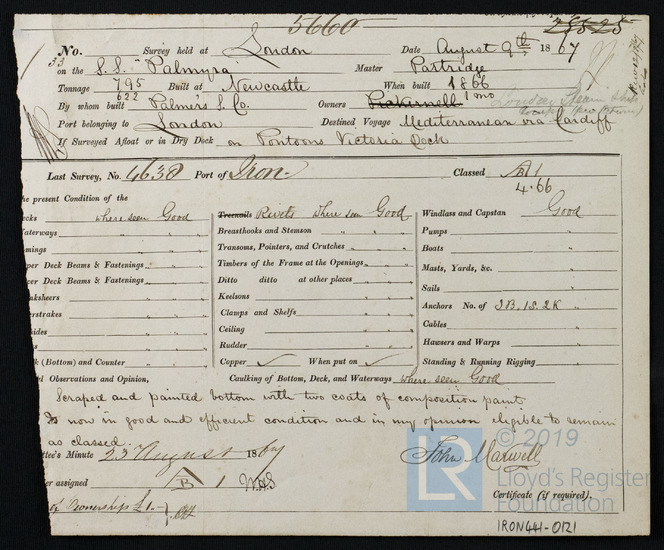 5660
28525
No. Survey held at London Date August 9th 1867
33 on the S.S. "Palmyra" Master Partridge
Tonnage 795 Built at Newcastle When built 1866
622 1 mo
By whom built Palmers & Co. Owners Pickernell London Steam
Port belonging to London Destined Voyage Mediterranean via Cardiff
If Surveyed Afloat or in Dry Dock on Pontoons Victoria Dock
Last Survey, No. 4638 Port of Iron. Classed A 1
4.66
he present Condition of the
cks where seen Good Treenails Rivets where seen Good Windlass and Capstan Good
Waterways " Breasthooks and Stemson " " Pumps "
mings " Transoms, Pointers, and Crutches " Boats "
per Deck Beams & Fastenings " Timbers of the Frame at the Openings " Masts, Yards, &c. "
er Deck Beams & Fastenings " Ditto ditto at other places " Sails "
nksheers " Keelsons " Anchors No. of 3B.1S.2K "
erstrakes " Clamps and Shelfs " Cables "
sides " Ceiling " Hawsers and Warps "
Rudder "
k (Bottom) and Counter " Copper ✓ When put on ✓ Standing & Running Rigging "
d Observations and Opinion, Caulking of Bottom, Deck, and Waterways where seen Good
Scraped and painted bottom with two coats of composition paint
Is now in good and efficient condition and in my opinion eligible to remain
as classed.
ttee's Minute 23 August 1867 John Maxwell
er assigned A B 1 WAS
Certificate (if required).
of Ownership £1-
© 2019
LR
Lloyd's Register
Foundation
IRON441-0121